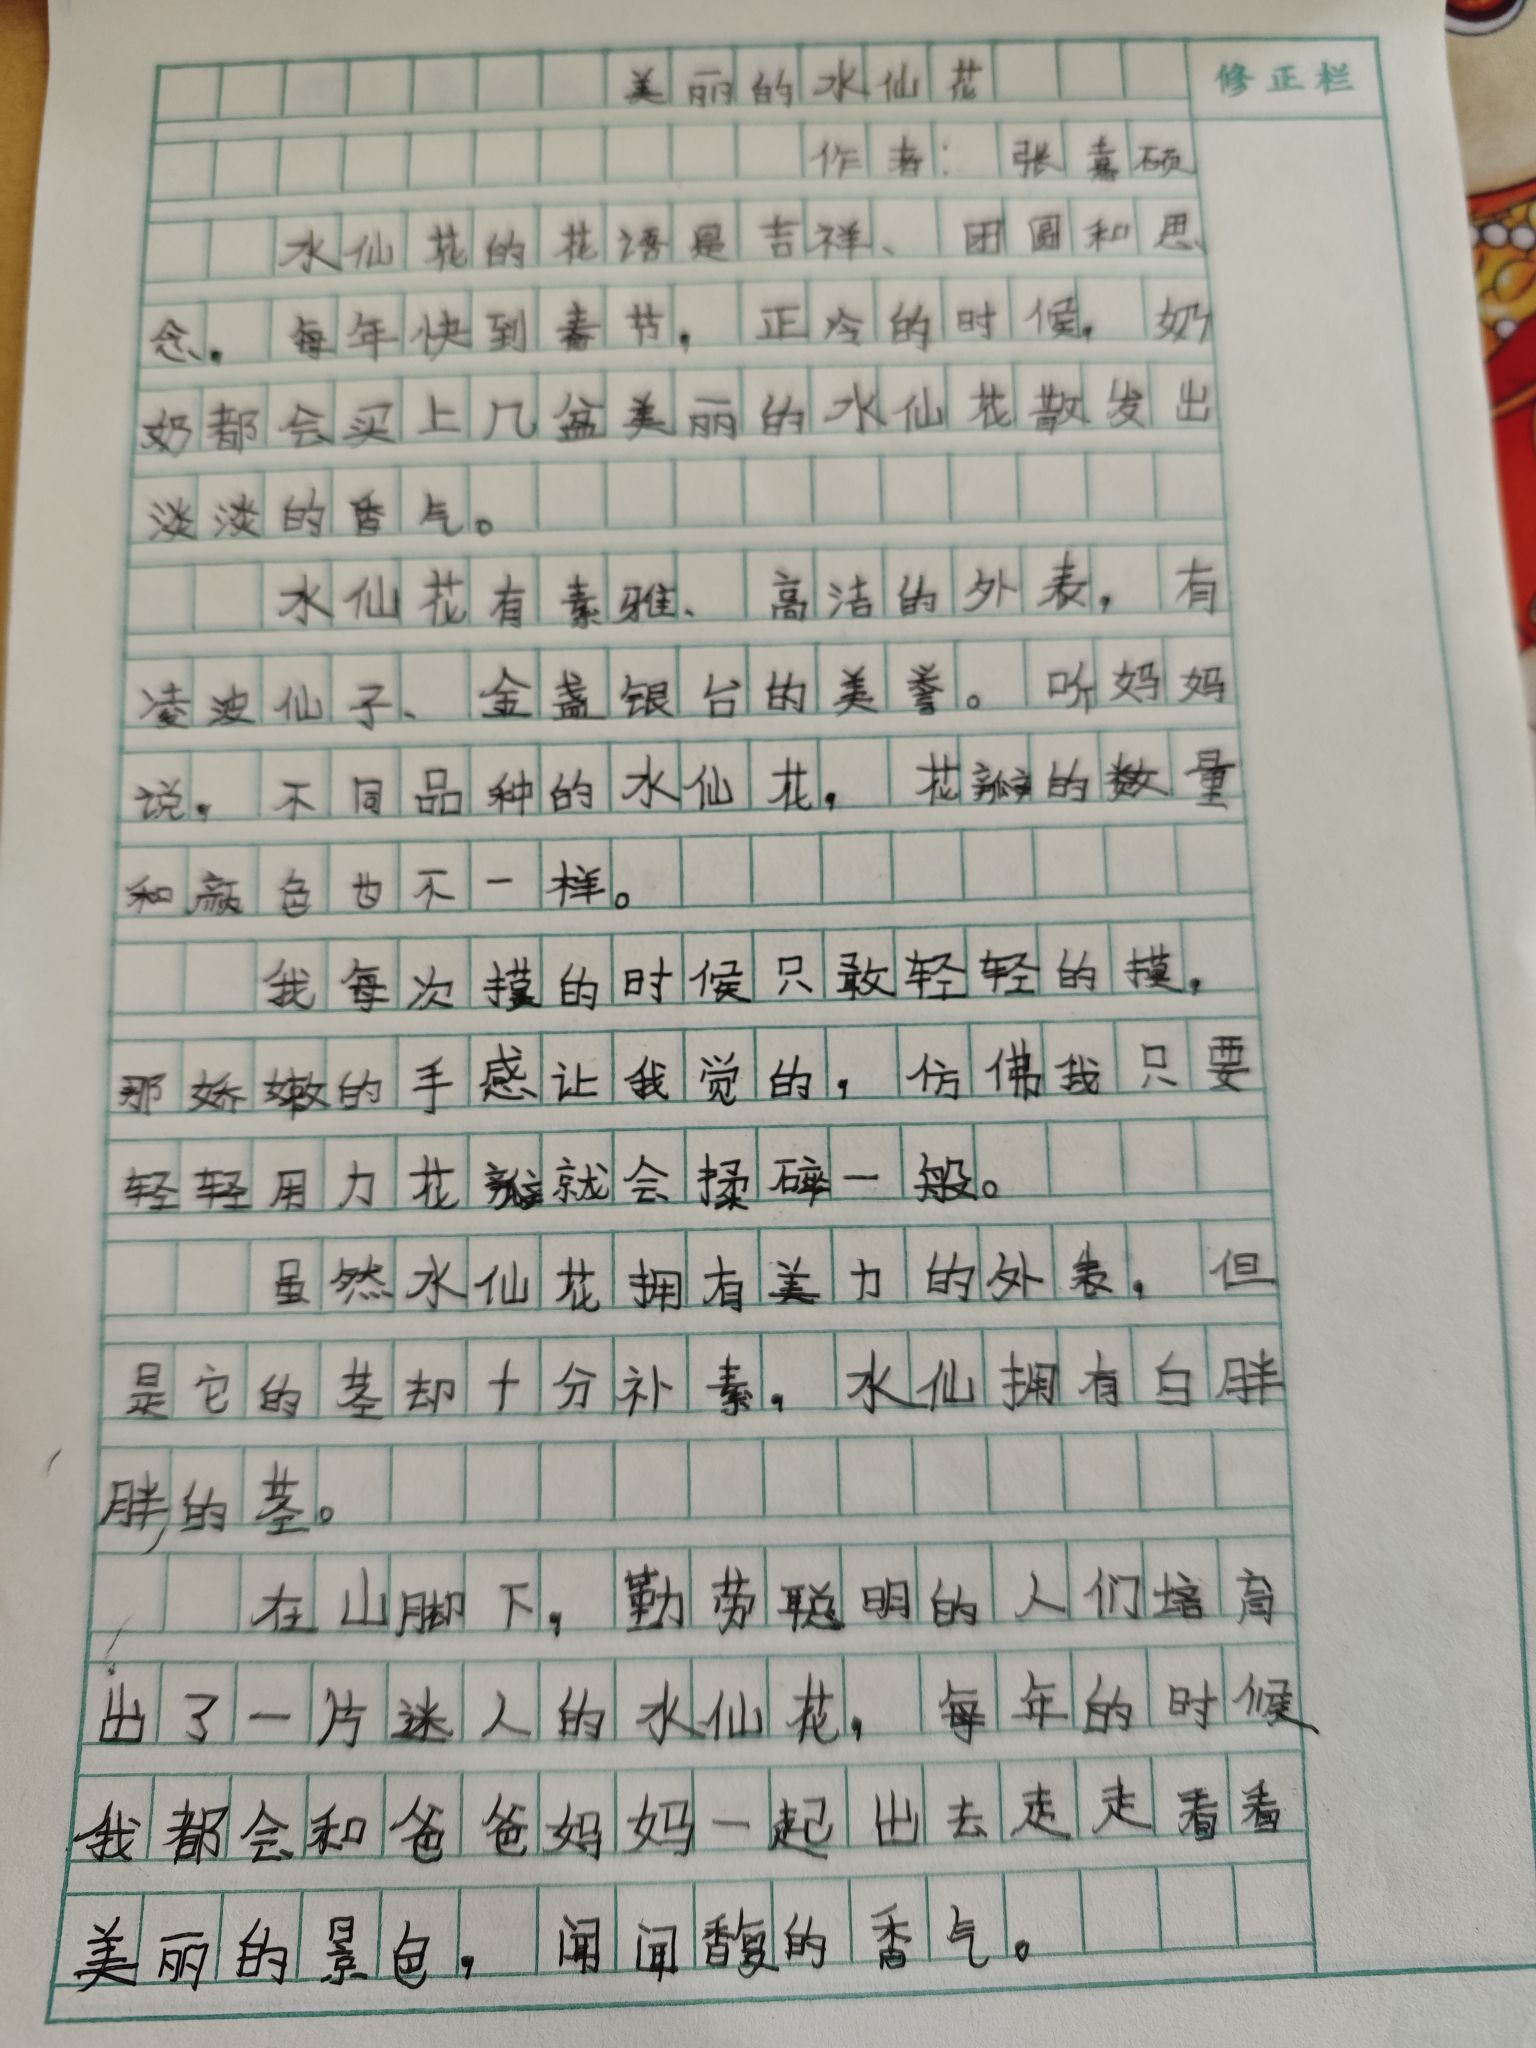 美丽的水仙花
修正栏
作者：张嘉硕
水仙花的花语是吉祥、团圆和思
念。每年快到春节，正冷的时候，奶
奶都会买上几盆美丽的水仙花散发出
淡淡的香气。
水仙花有素雅、高洁的外表，有
凌波仙子、金盏银台的美誉。听妈妈
说，不同品种的水仙花，花瓣的数量
和颜色也不一样。
我每次摸的时候只敢轻轻的摸，
那娇嫩的手感让我觉的，仿佛我只要
轻轻用力花瓣就会揉碎一般。
虽然水仙花拥有美力的外表，但
是它的茎却十分补素，水仙拥有白胖
胖的茎。
在山脚下，勤劳聪明的人们培育
出了一片迷人的水仙花，每年的时候
我都会和爸爸妈妈一起出去走走看看
美丽的景色，闻闻馥的香气。